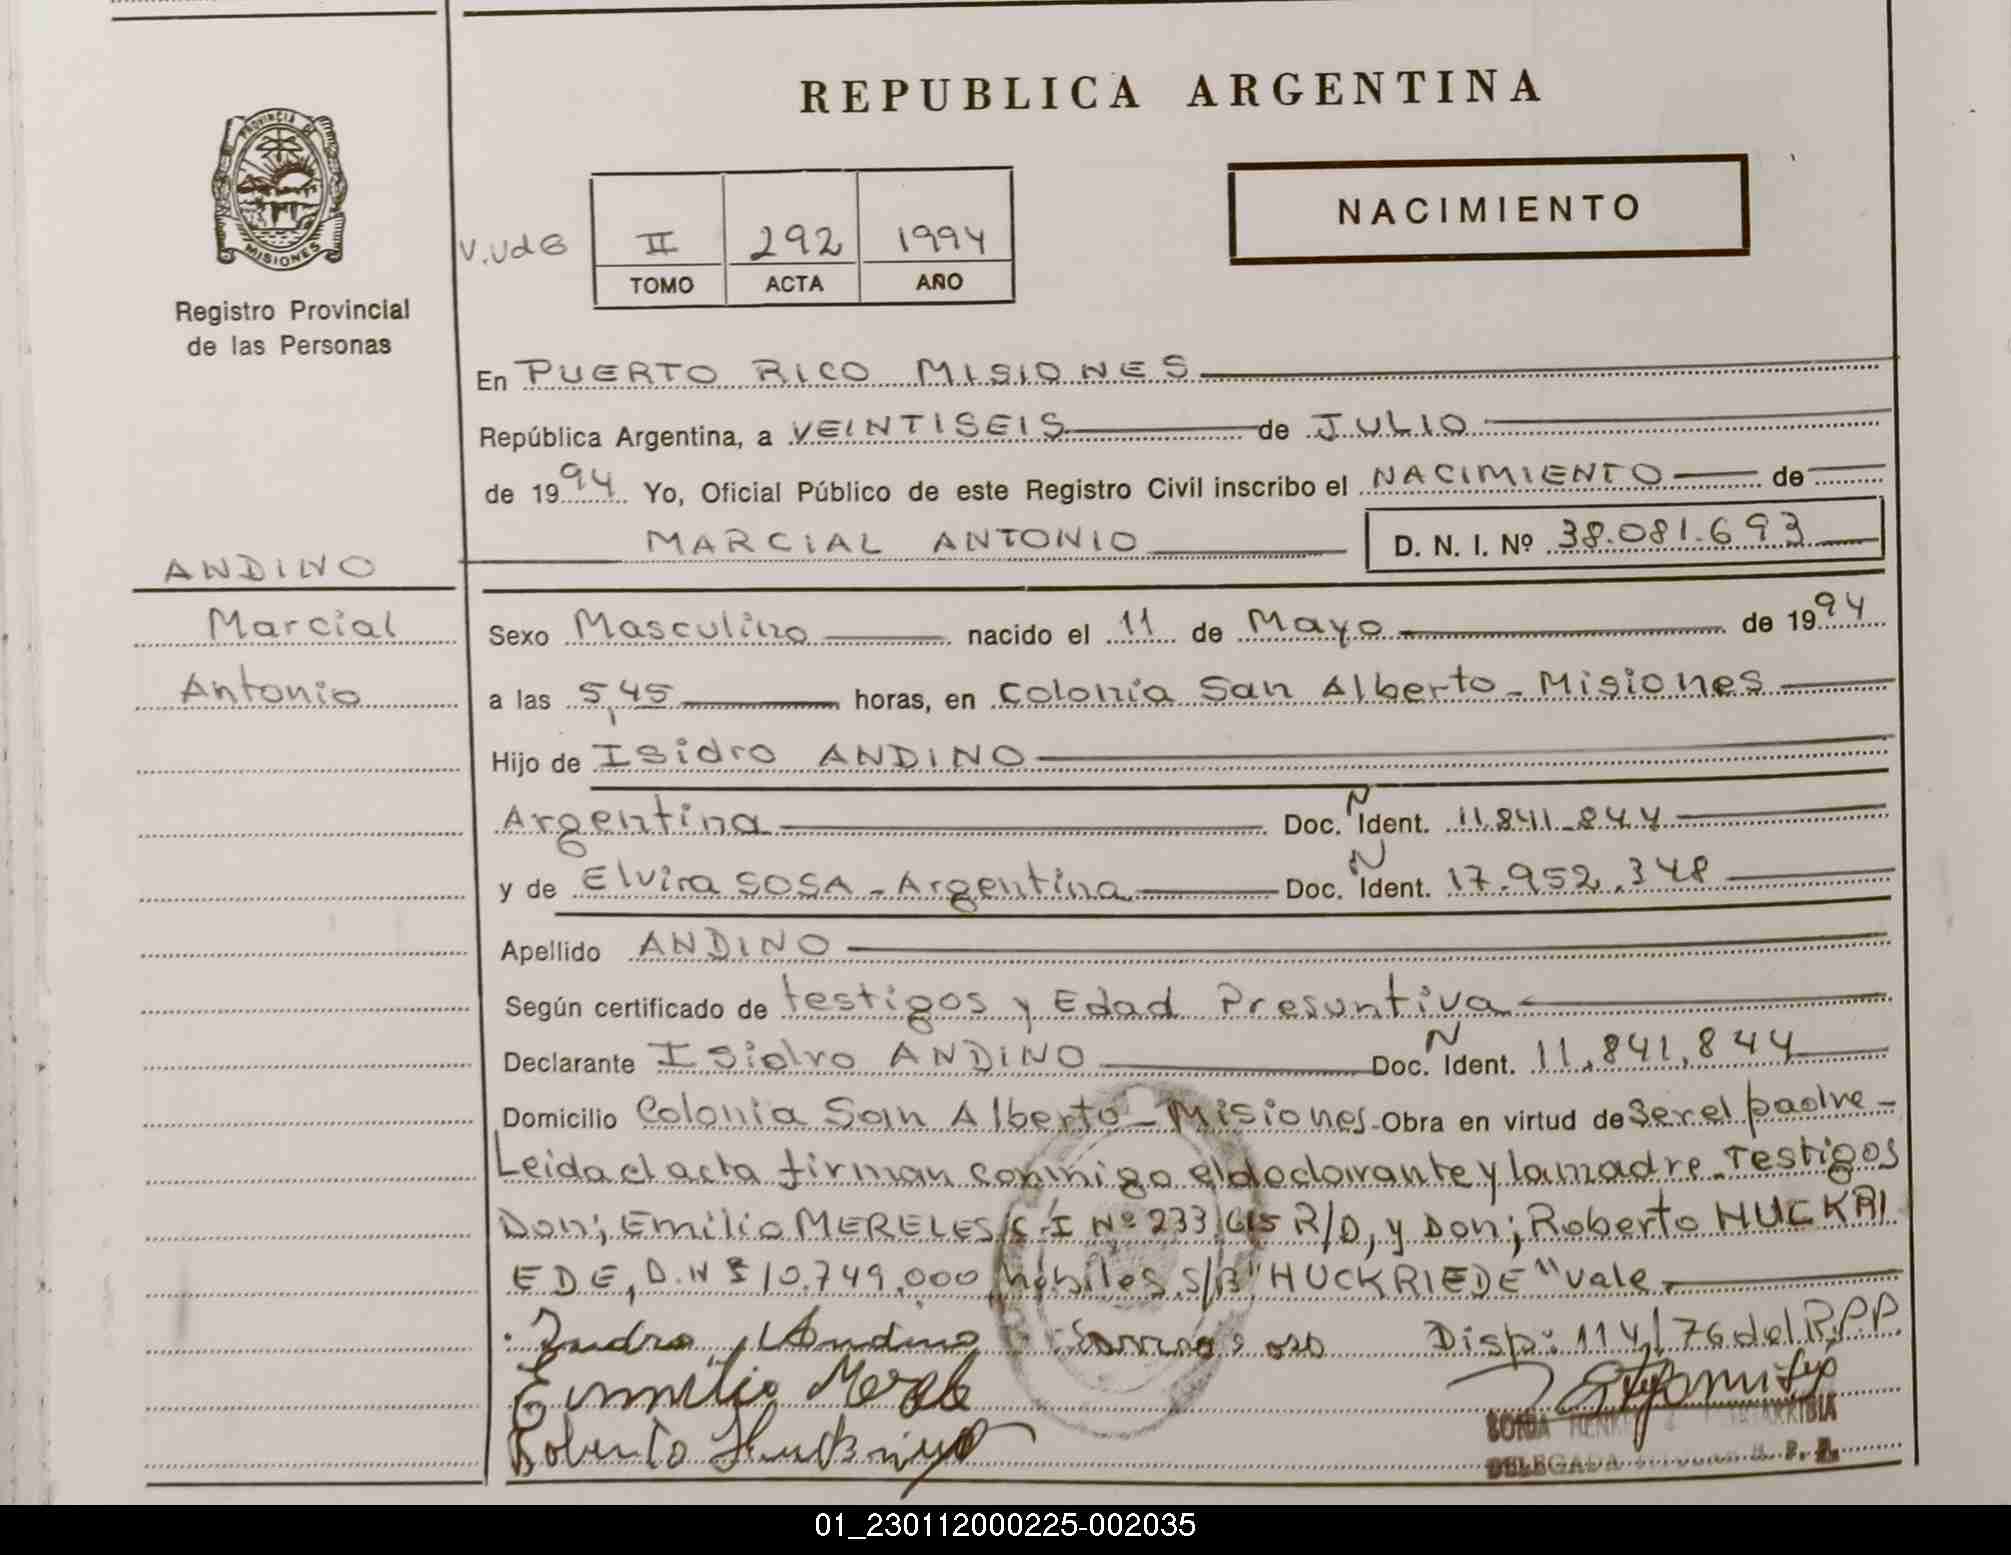 REPUBLICA ARGENTINA
PROVINCIA DE
MISIONES
Registro Provincial
de las Personas
NACIMIENTO
II 292 1994
TOMO ACTA AÑO
En PUERTO RICO MISIONES
República Argentina, a VEINTISEIS de JULIO
de 1994 Yo, Oficial Público de este Registro Civil inscribo el NACIMIENTO de
MARCIAL ANTONIO D. N. I. Nº 38.081.693
ANDINO
Marcial
Antonio
Sexo Masculino nacido el 11 de Mayo de 1994
a las 5,45 horas, en Colonia San Alberto - Misiones
Hijo de Isidro ANDINO
Argentina Doc. N Ident. 11.841.844
y de Elvira SOSA - Argentina Doc. N Ident. 17.952.348
Apellido ANDINO
Según certificado de testigos y Edad Presuntiva
Declarante Isidro ANDINO Doc. N Ident. 11,841,844
Domicilio Colonia San Alberto - Misiones - Obra en virtud de ser el padre -
Leida el acta firman conmigo el declarante y la madre - Testigos
Don; Emilio MERELES C.I Nº 233.615 R/D, y Don; Roberto HUCKRI
EDE, D.N I 10.749.000 hábiles. S/B "HUCKRIEDE" Vale
Isidro Andino Disp: 114/76 del R.P.P.
Emilio Merele
Roberto Huckriede
SONIA
DELEGADA
01_230112000225-002035